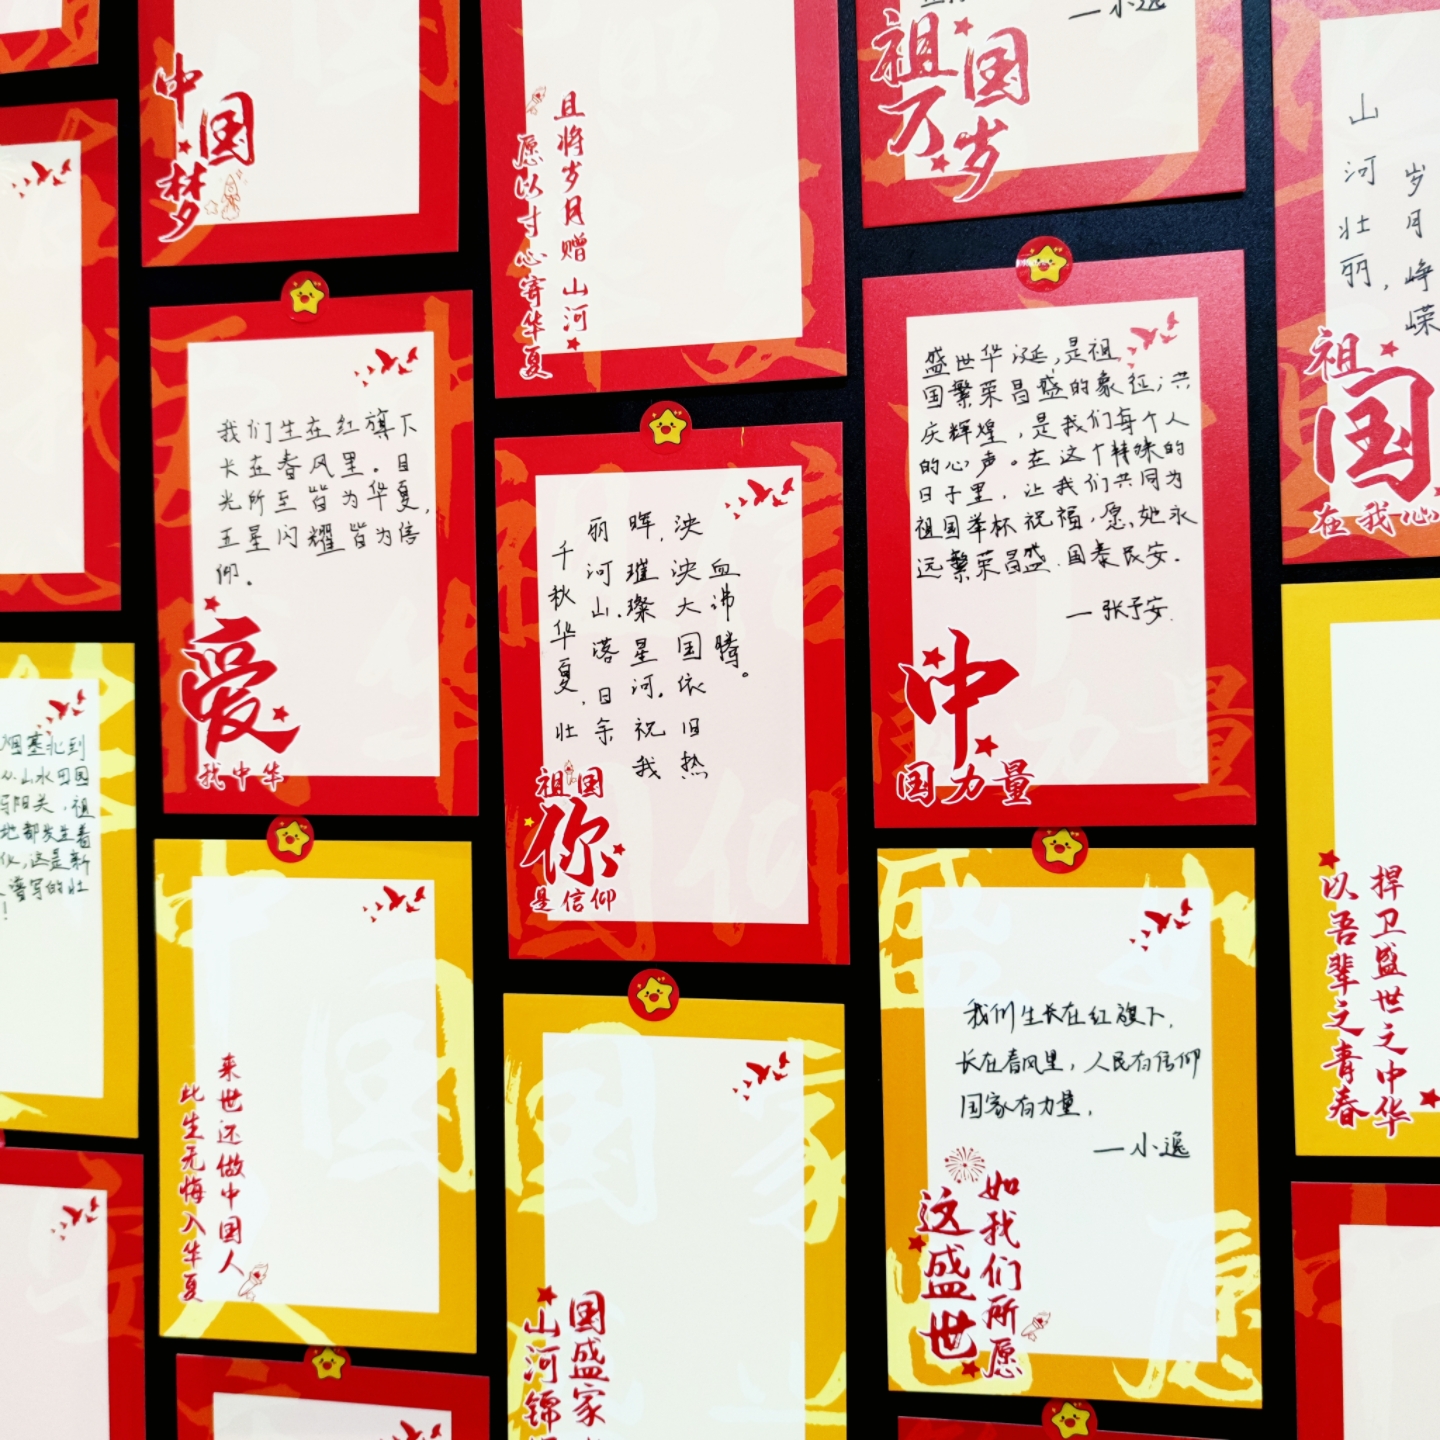 中国梦
愿以寸心寄华夏
且将岁月赠山河
一小逸
祖国万岁
山河壮丽,
岁月峥嵘
祖国
在我心
我们生在红旗下
长在春风里。目
光所至皆为华夏,
五星闪耀皆为信
仰。
爱
我中华
千秋华夏,壮
丽河山.落日余
晖,璀璨星河.祝我
泱泱大国依旧热
血沸腾。
祖国
你
是信仰
盛世华诞,是祖
国繁荣昌盛的象征;共
庆辉煌,是我们每个人
的心声。在这个特殊的
日子里,让我们共同为
祖国举杯祝福,愿她永
远繁荣昌盛.国泰民安.
一张予安.
中
国力量
塞北到
山水田园
阳关,祖
地都发生着
化,这是新
谱写的壮
!
此生无悔入华夏
来世还做中国人
山河锦
国盛家
我们生长在红旗下,
长在春风里,人民有信仰
国家有力量.
一小逸
这盛世
如我们所愿
以吾辈之青春
捍卫盛世之中华